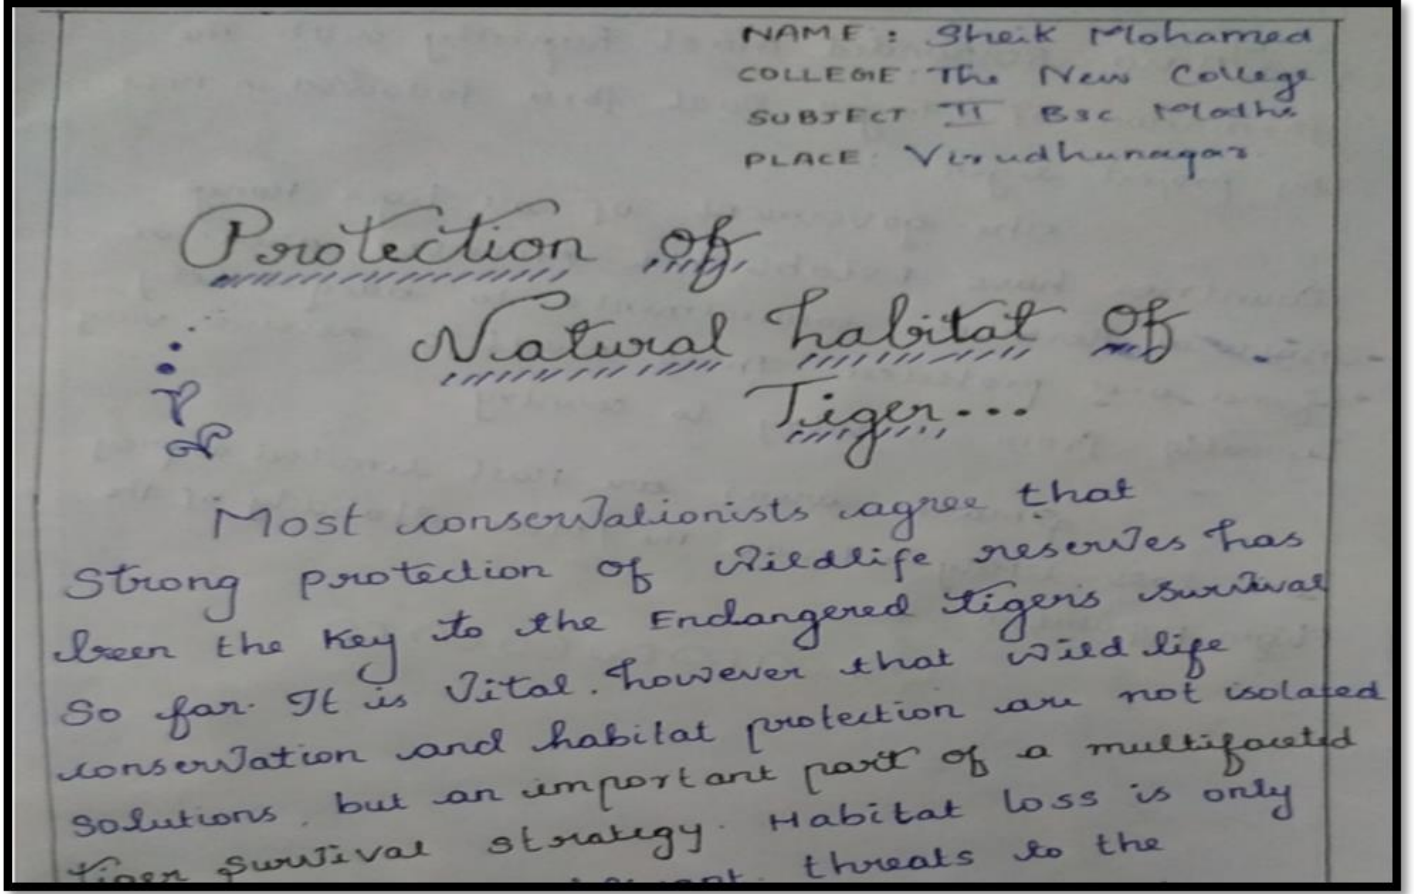 NAME : Sheik Mohamed
COLLEGE : The New College
SUBJECT II Bsc Maths
PLACE : Virudhunagar
Protection of
Natural habitat of
Tiger...
Most conservationists agree that
Strong protection of Wildlife reserves has
been the Key to the Endangered tigers survival
So far. It is Vital. however that wild life
conservation and habitat protection are not isolated
Solutions, but an important part of a multifaceted
tiger survival strategy. Habitat loss is only
threats to the